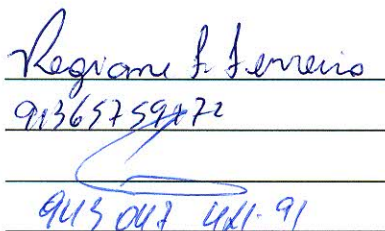 Regiane F. Ferreira
91365759272
943 047 421-91